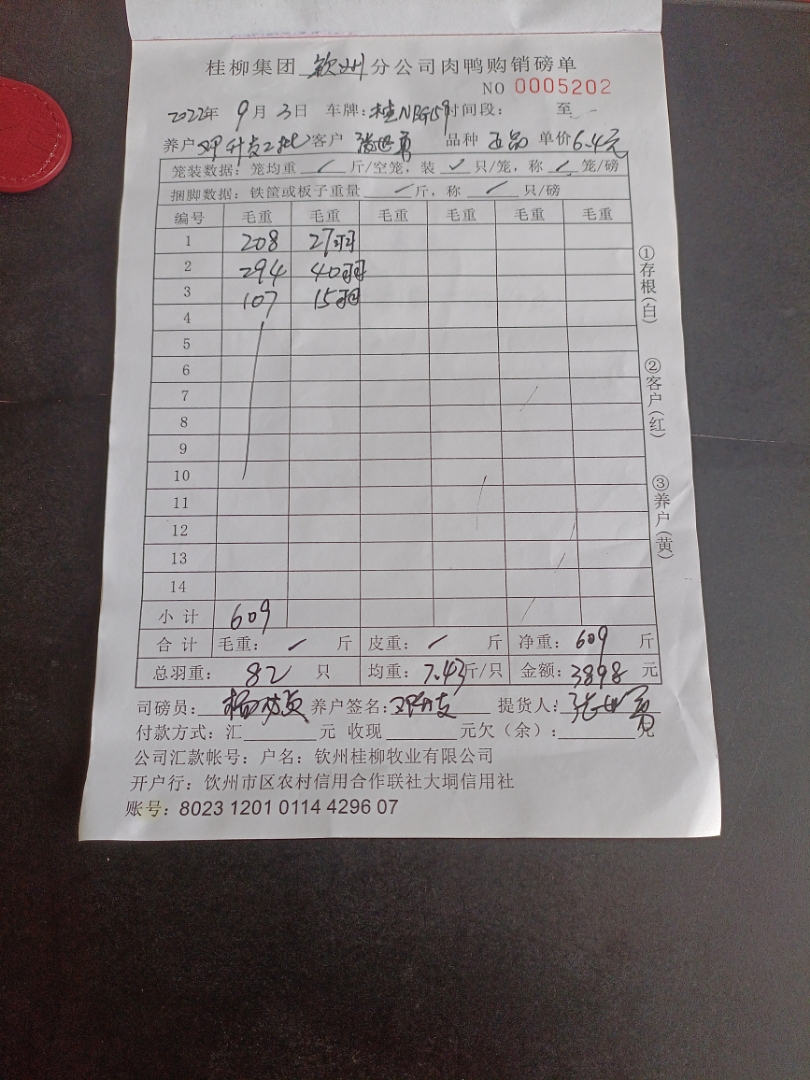 桂柳集团 钦州 分公司肉鸭购销磅单
NO 0005202
2022年 9月 3日 车牌:桂N 时间段: 至
养户 邓升 2批 客户 张世勇 品种 正品 单价6.4元
笼装数据:笼均重 斤/空笼,装 只/笼,称 笼/磅
捆脚数据:铁筐或板子重量 斤,称 只/磅
编号 毛重 毛重 毛重 毛重 毛重 毛重
1 208 27羽
2 294 40羽
3 107 15羽
4
5
6
7
8
9
10
11
12
13
14
小计 609
合计 毛重: 斤 皮重: 斤 净重:609 斤
总羽重: 82 只 均重:7.43斤/只 金额:3898元
司磅员:杨 养户签名:邓升 提货人:张世勇
付款方式:汇 元 收现 元欠(余): 元
公司汇款帐号:户名:钦州桂柳牧业有限公司
开户行:钦州市区农村信用合作联社大垌信用社
账号:8023 1201 0114 4296 07
①存根(白)
②客户(红)
③养户(黄)